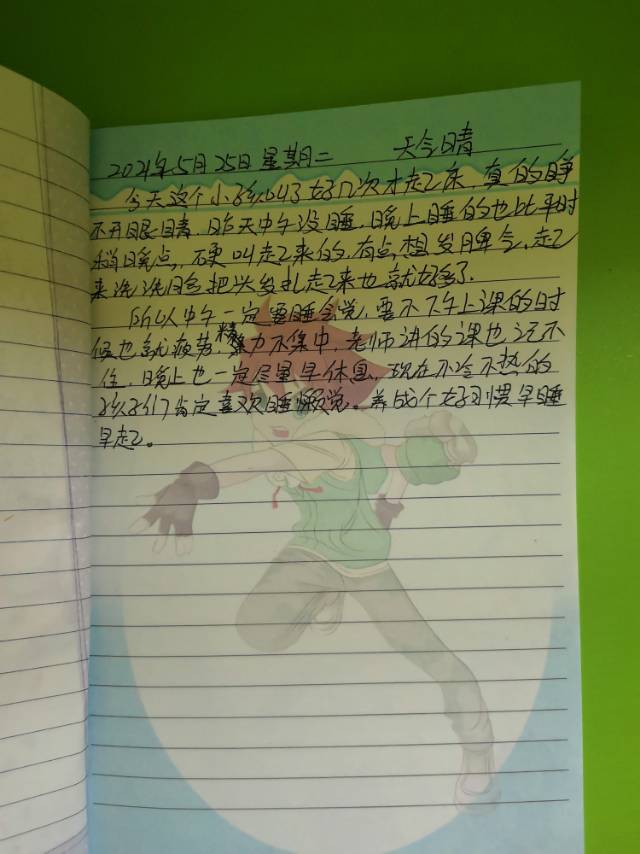 2021年5月25日 星期二 天气晴
今天这个小孩叫了好几次才起床,真的睁
不开眼睛,昨天中午没睡,晚上睡的也比平时
稍晚点,硬叫起来的,有点想发脾气,起
来洗洗脸把头发扎起来也就好多了.
所以中午一定要睡会觉,要不下午上课的时
候也就疲劳,精力不集中,老师讲的课也记不
住,晚上也一定尽量早休息,现在不冷不热的
孩子们肯定喜欢睡懒觉。养成个好习惯早睡
早起。